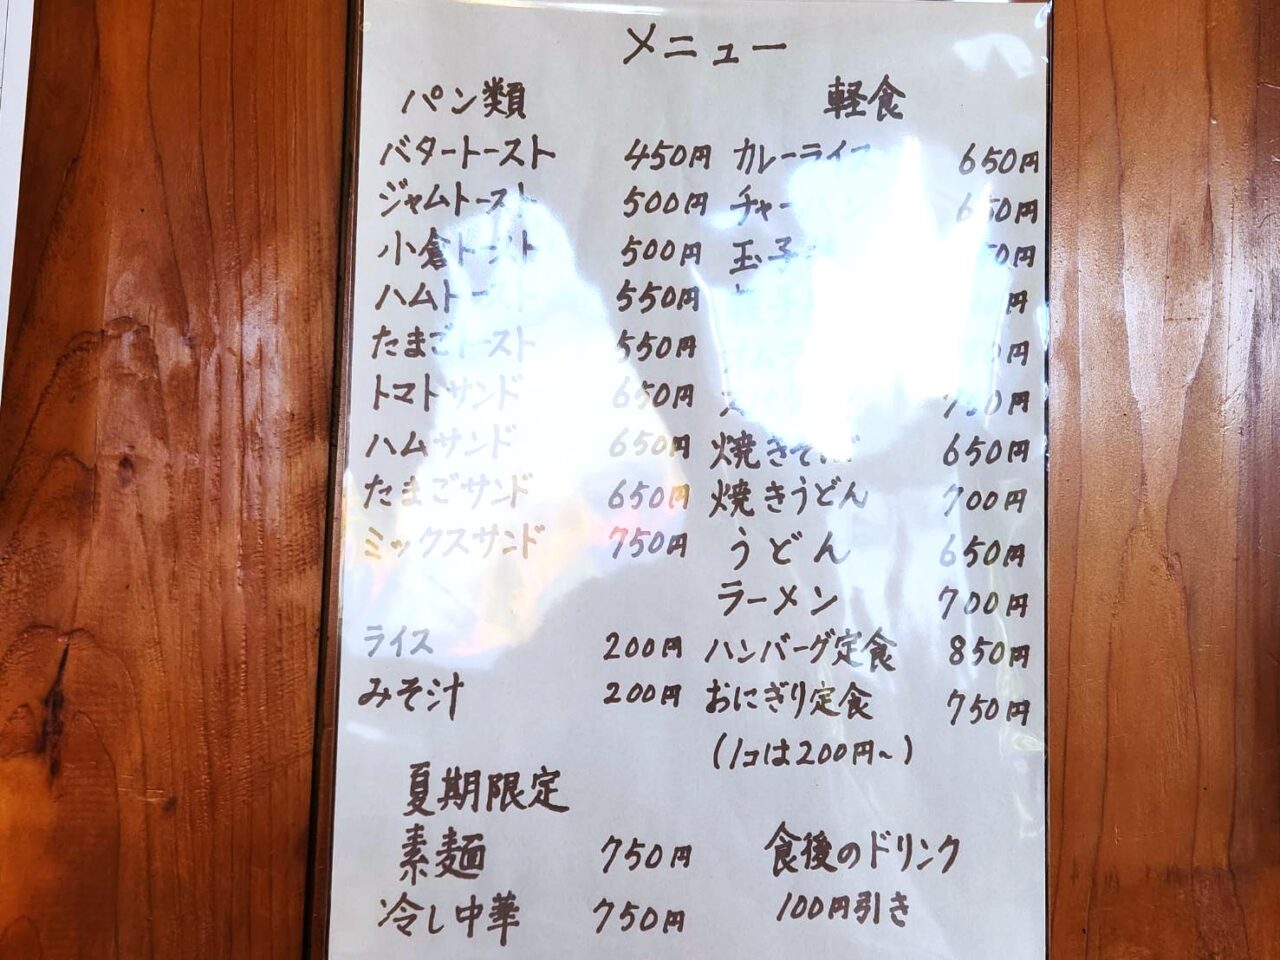 メニュー
パン類
バタートースト 450円
ジャムトースト 500円
小倉トースト 500円
ハムトースト 550円
たまごトースト 550円
トマトサンド 650円
ハムサンド 650円
たまごサンド 650円
ミックスサンド 750円
ライス 200円
みそ汁 200円
夏期限定
素麺 750円
冷し中華 750円
軽食
カレーライス 650円
チャーハン 650円
玉子
焼きそば 650円
焼きうどん 700円
うどん 650円
ラーメン 700円
ハンバーグ定食 850円
おにぎり定食 750円
(1コは200円〜)
食後のドリンク
100円引き